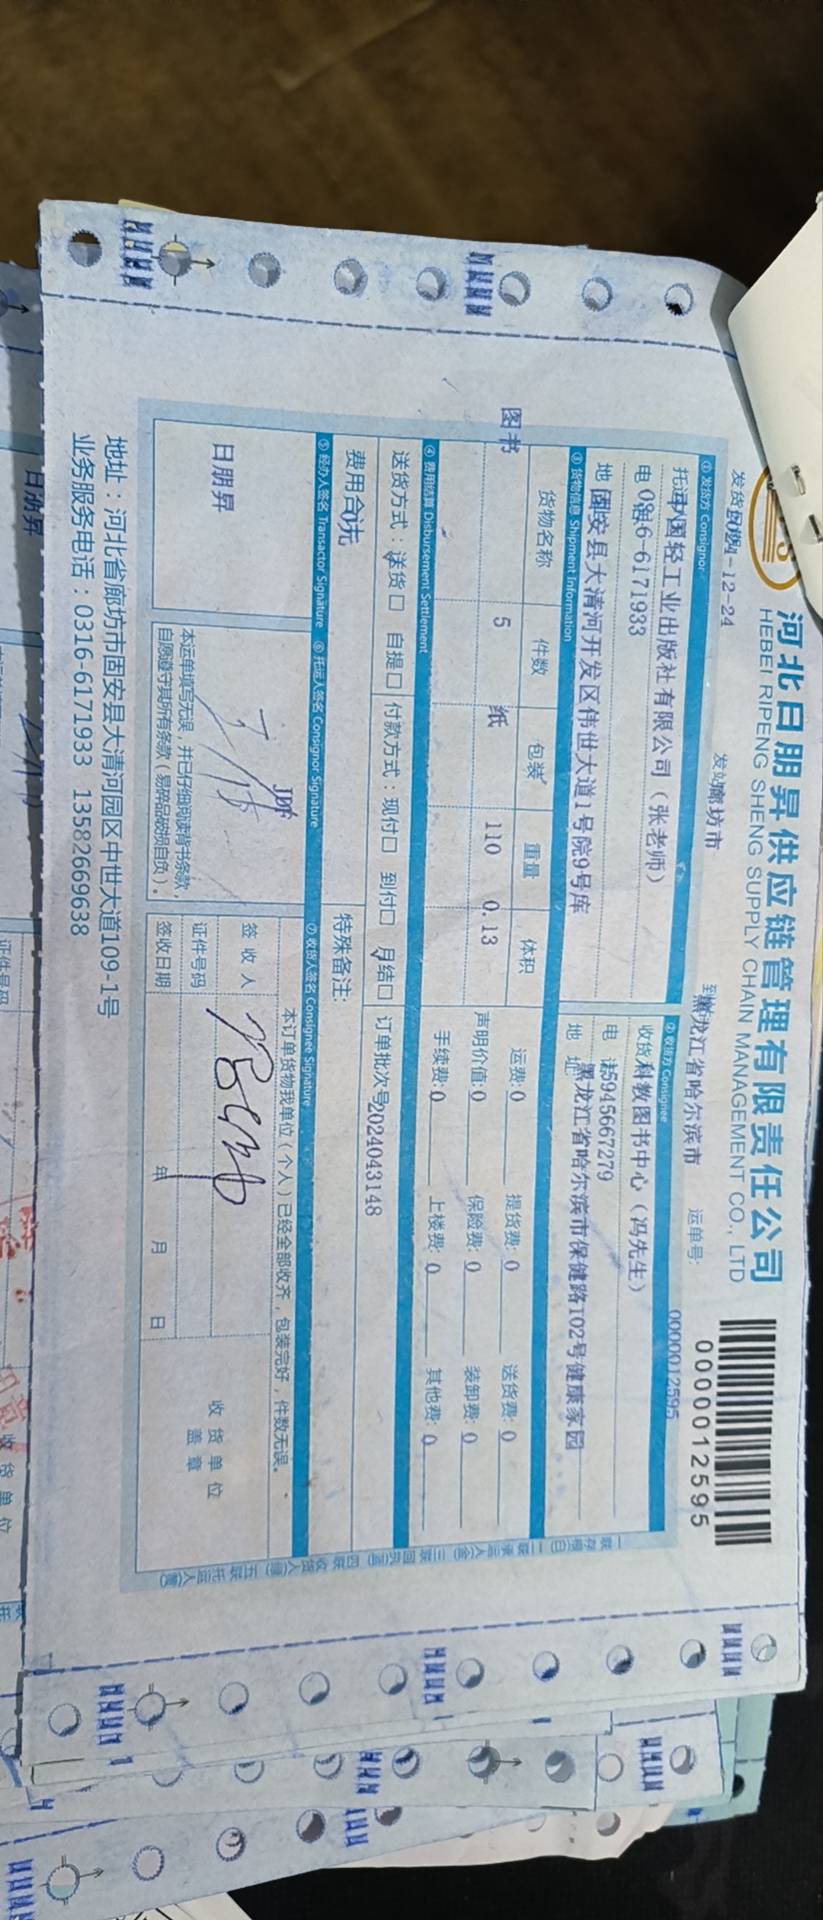 河北日朋昇供应链管理有限责任公司
HEBEI RIPENG SHENG SUPPLY CHAIN MANAGEMENT CO., LTD
0000012595
发货 -12-24 廊坊市 黑龙江省哈尔滨市 运单号: 0000012595
① 发货方 Consignor ② 收货方 Consignee
中国轻工业出版社有限公司（张老师） 收货 科教图书中心（冯先生）
6-6171933 5945667279
固安县大清河开发区伟世大道1号院9号库 地 址 黑龙江省哈尔滨市保健路102号健康家园
③ 货物信息 Shipment Information
货物名称 件数 包装 重量 体积 运费: 0 提货费: 0 送货费: 0
图书 5 纸 110 0.13 声明价值: 0 保险费: 0 装卸费: 0
手续费: 0 上楼费: 0 其他费: 0
④ 费用结算 Disbursement Settlement
送货方式：送货□ 自提□ 付款方式：现付□ 到付□ 月结□ 订单批次号 2024043148
费用合 特殊备注:
⑤ 经办人签名 Transactor Signature ⑥ 托运人签名 Consignor Signature ⑦ 收货人签名 Consignee Signature
本订单货物我单位（个人）已经全部收齐，包装完好，件数无误。
日朋昇
签 收 人
证件号码
签收日期 年 月 日
收 货 单 位
盖 章
本运单填写无误，并已仔细阅读背书条款，
自愿遵守其所有条款（易碎品破损自负）。
地址：河北省廊坊市固安县大清河园区中世大道109-1号
业务服务电话：0316-6171933 13582669638
日朋昇
证件号码
收 货 单 位